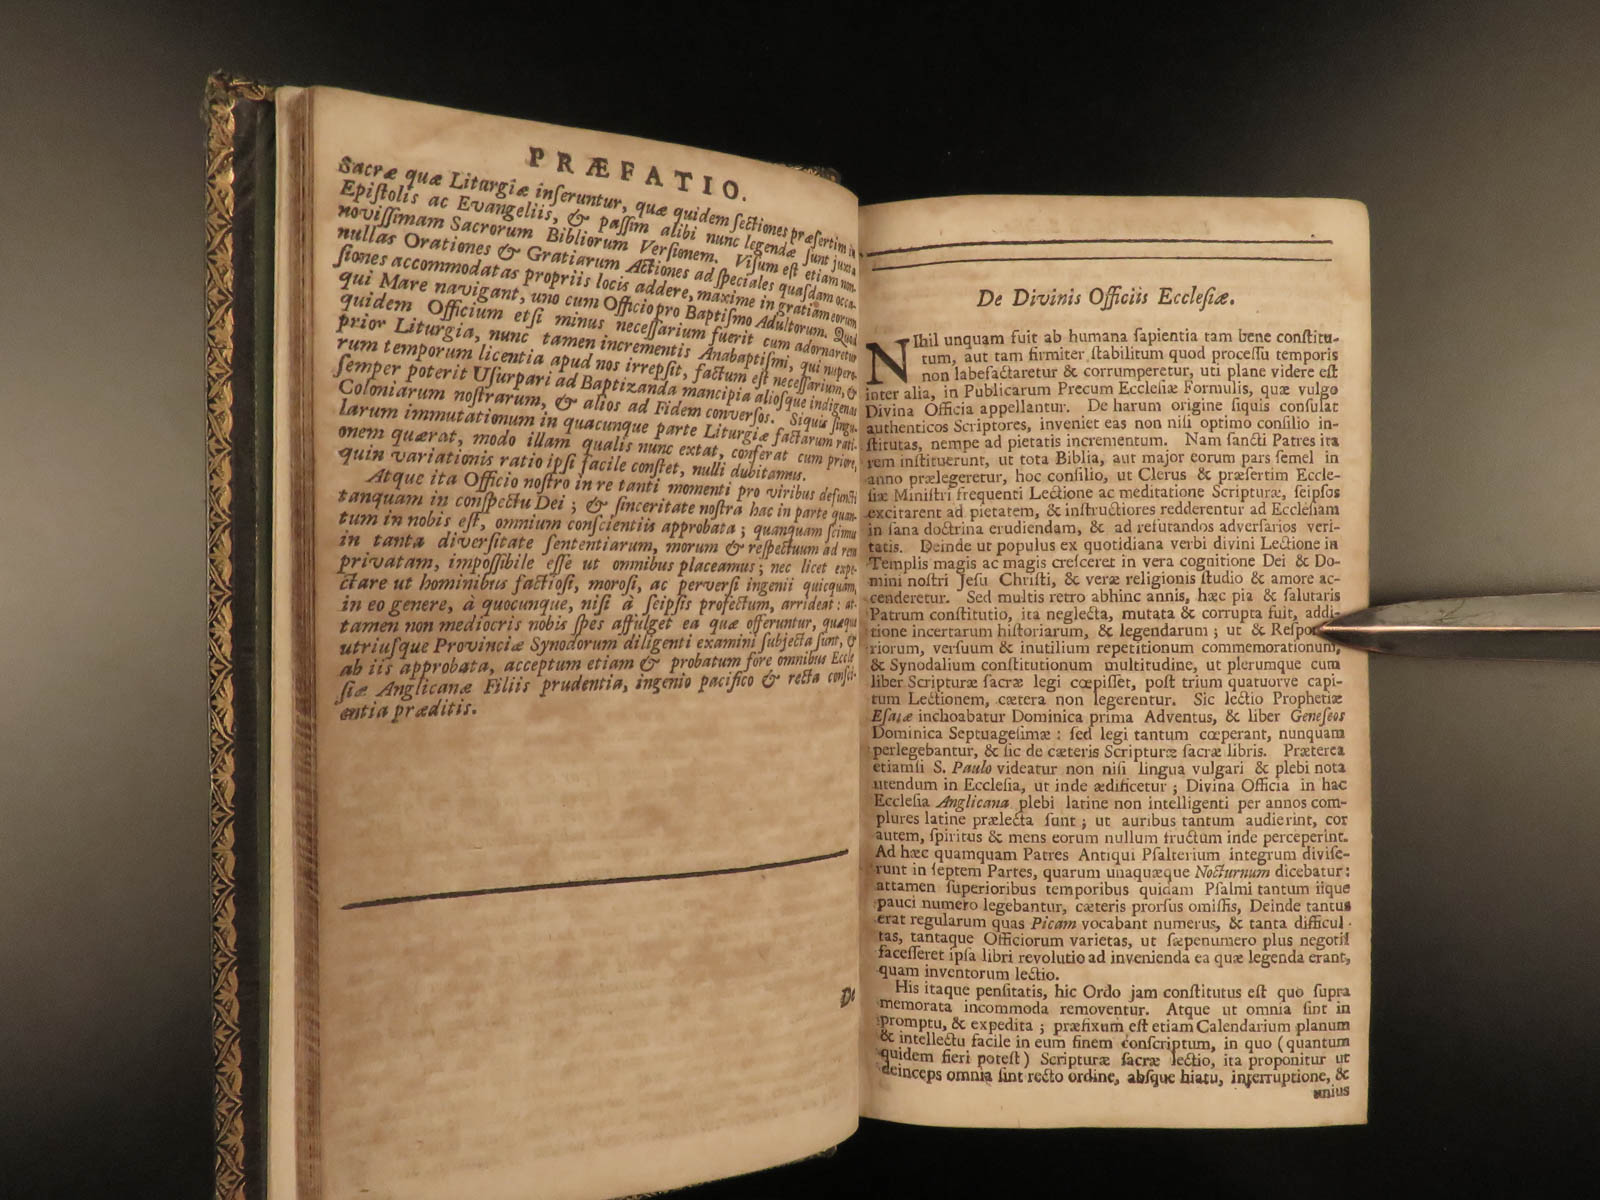 PRÆFATIO.
Sacræ quæ Liturgiæ inſeruntur, quæ quidem ſectiones præſertim in
Epiſtolis ac Evangeliis, & paſſim alibi nunc legendæ ſunt juxta
noviſſimam Sacrorum Bibliorum Verſionem. Viſum eſt etiam non-
nullas Orationes & Gratiarum Actiones ad ſpeciales quaſdam occa-
ſiones accommodatas propriis locis addere, maxime in gratiam eorum
qui Mare navigant, uno cum Officio pro Baptiſmo Adultorum. Quod
quidem Officium etſi minus neceſſarium fuerit cum adornaretur
prior Liturgia, nunc tamen incrementis Anabaptiſmi, qui nupero-
rum temporum licentia apud nos irrepſit, factum eſt neceſſarium, &
ſemper poterit Uſurpari ad Baptizanda mancipia alioſque indigenas
Coloniarum noſtrarum, & alios ad Fidem converſos. Siquis ſingu-
larum immutationum in quacunque parte Liturgiæ factarum rati-
onem quærat, modo illam qualis nunc extat, conferat cum priore,
quin variationis ratio ipſi facile conſtet, nulli dubitamus.
Atque ita Officio noſtro in re tanti momenti pro viribus defuncti
tanquam in conſpectu Dei ; & ſinceritate noſtra hac in parte quan-
tum in nobis eſt, omnium conſcientiis approbata ; quanquam ſcimus
in tanta diverſitate ſententiarum, morum & reſpectuum ad rem
privatam, impoſſibile eſſe ut omnibus placeamus ; nec licet expe-
ctare ut hominibus factioſi, moroſi, ac perverſi ingenii quicquam,
in eo genere, à quocunque, niſi à ſeipſis profectum, arrideat : at-
tamen non mediocris nobis ſpes affulget ea quæ offeruntur, quæque
utriuſque Provinciæ Synodorum diligenti examini ſubjecta ſunt, &
ab iis approbata, acceptum etiam & probatum fore omnibus Eccle
ſiæ Anglicanæ Filiis prudentia, ingenio pacifico & recta conſci-
entia præditis.
De
De Divinis Officiis Eccleſiæ.
NIhil unquam fuit ab humana ſapientia tam bene conſtitu-
tum, aut tam firmiter ſtabilitum quod proceſſu temporis
non labefactaretur & corrumperetur, uti plane videre eſt
inter alia, in Publicarum Precum Eccleſiæ Formulis, quæ vulgo
Divina Officia appellantur. De harum origine ſiquis conſulat
authenticos Scriptores, inveniet eas non niſi optimo conſilio in-
ſtitutas, nempe ad pietatis incrementum. Nam ſancti Patres ita
rem inſtituerunt, ut tota Biblia, aut major eorum pars ſemel in
anno prælegeretur, hoc conſilio, ut Clerus & præſertim Eccle-
ſiæ Miniſtri frequenti Lectione ac meditatione Scripturæ, ſeipſos
excitarent ad pietatem, & inſtructiores redderentur ad Eccleſiam
in ſana doctrina erudiendam, & ad refutandos adverſarios veri-
tatis. Deinde ut populus ex quotidiana verbi divini Lectione in
Templis magis ac magis creſceret in vera cognitione Dei & Do-
mini noſtri Jeſu Chriſti, & veræ religionis ſtudio & amore ac-
cenderetur. Sed multis retro abhinc annis, hæc pia & ſalutaris
Patrum conſtitutio, ita neglecta, mutata & corrupta fuit, addi-
tione incertarum hiſtoriarum, & legendarum ; ut & Reſpon
riorum, verſuum & inutilium repetitionum commemorationum,
& Synodalium conſtitutionum multitudine, ut plerumque cum
liber Scripturæ ſacræ legi cœpiſſet, poſt trium quatuorve capi-
tum Lectionem, cætera non legerentur. Sic lectio Prophetiæ
Eſaiæ inchoabatur Dominica prima Adventus, & liber Geneſeos
Dominica Septuageſimæ : ſed legi tantum cœperant, nunquam
perlegebantur, & ſic de cæteris Scripturæ ſacræ libris. Præterea
etiamſi S. Paulo videatur non niſi lingua vulgari & plebi nota
utendum in Eccleſia, ut inde ædificetur ; Divina Officia in hac
Eccleſia Anglicana plebi latine non intelligenti per annos com-
plures latine prælecta ſunt ; ut auribus tantum audierint, cor
autem, ſpiritus & mens eorum nullum fructum inde perceperint.
Ad hæc quamquam Patres Antiqui Pſalterium integrum diviſe-
runt in ſeptem Partes, quarum unaquæque Nocturnum dicebatur :
attamen ſuperioribus temporibus quidam Pſalmi tantum iique
pauci numero legebantur, cæteris prorſus omiſſis, Deinde tantus
erat regularum quas Picam vocabant numerus, & tanta difficul-
tas, tantaque Officiorum varietas, ut ſæpenumero plus negotii
faceſſeret ipſa libri revolutio ad invenienda ea quæ legenda erant,
quam inventorum lectio.
His itaque penſitatis, hic Ordo jam conſtitutus eſt quo ſupra
memorata incommoda removentur. Atque ut omnia ſint in
promptu, & expedita ; præfixum eſt etiam Calendarium planum
& intellectu facile in eum finem conſcriptum, in quo (quantum
quidem fieri poteſt) Scripturæ ſacræ lectio, ita proponitur ut
deinceps omnia ſint recto ordine, abſque hiatu, interruptione, &
unius